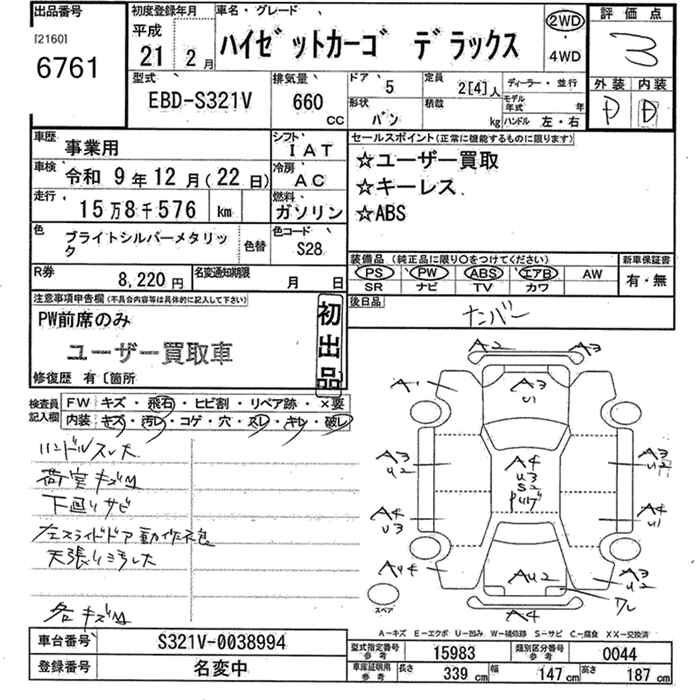 出品番号
[2160]
6761
初度登録年月
平成
21年
2月
車名・グレード
ハイゼットカーゴ デラックス
2WD
・
4WD
評価点
3
外装 内装
D D
型式
EBD-S321V
排気量
660
CC
ドア
5
形状
バン
定員
2[4]人
積載
kg
ディーラー・並行
モデル年式
年
ハンドル 左・右
車歴
事業用
シフト
IAT
車検
令和 9年12月(22日)
冷房
AC
走行
15万8千576 km
燃料
ガソリン
色
ブライトシルバーメタリック
色替
色コード
S28
R券
8,220円
名変通知期限
月 日
セールスポイント(正常に機能するものに限ります)
☆ユーザー買取
☆キーレス
☆ABS
装備品 (純正品に限り○をつけてください)
PS PW ABS エアB AW
SR ナビ TV カワ
新車保証書
有・無
後日品
ナンバー
注意事項申告欄(不具合内容等は具体的に記入して下さい)
PW前席のみ
ユーザー買取車
修復歴 有〔箇所
初出品
検査員記入欄
FW キズ・飛石・ヒビ割・リペア跡・×要
内装 キズ・汚レ・コゲ・穴・スレ・キレ・破レ
ハンドルスレ大
荷室キズM
下回りサビ
左スライドドア動作不良
天張りミラレタ
各キズM
A2 A3
A1
A3
U1
A3
U2
A4
U3
S2
A3
A4
U3
A4
U1
A4
AU2
A3
U2
ワレ
A4
スペア
A-キズ E-エクボ U-凹み W-補修跡 S-サビ C-腐食 XX-交換済
車台番号
S321V-0038994
登録番号
名変中
型式指定番号
参考
15983
類別区分番号
参考
0044
車庫証明用
参考
長さ
339 cm
幅
147 cm
高さ
187 cm